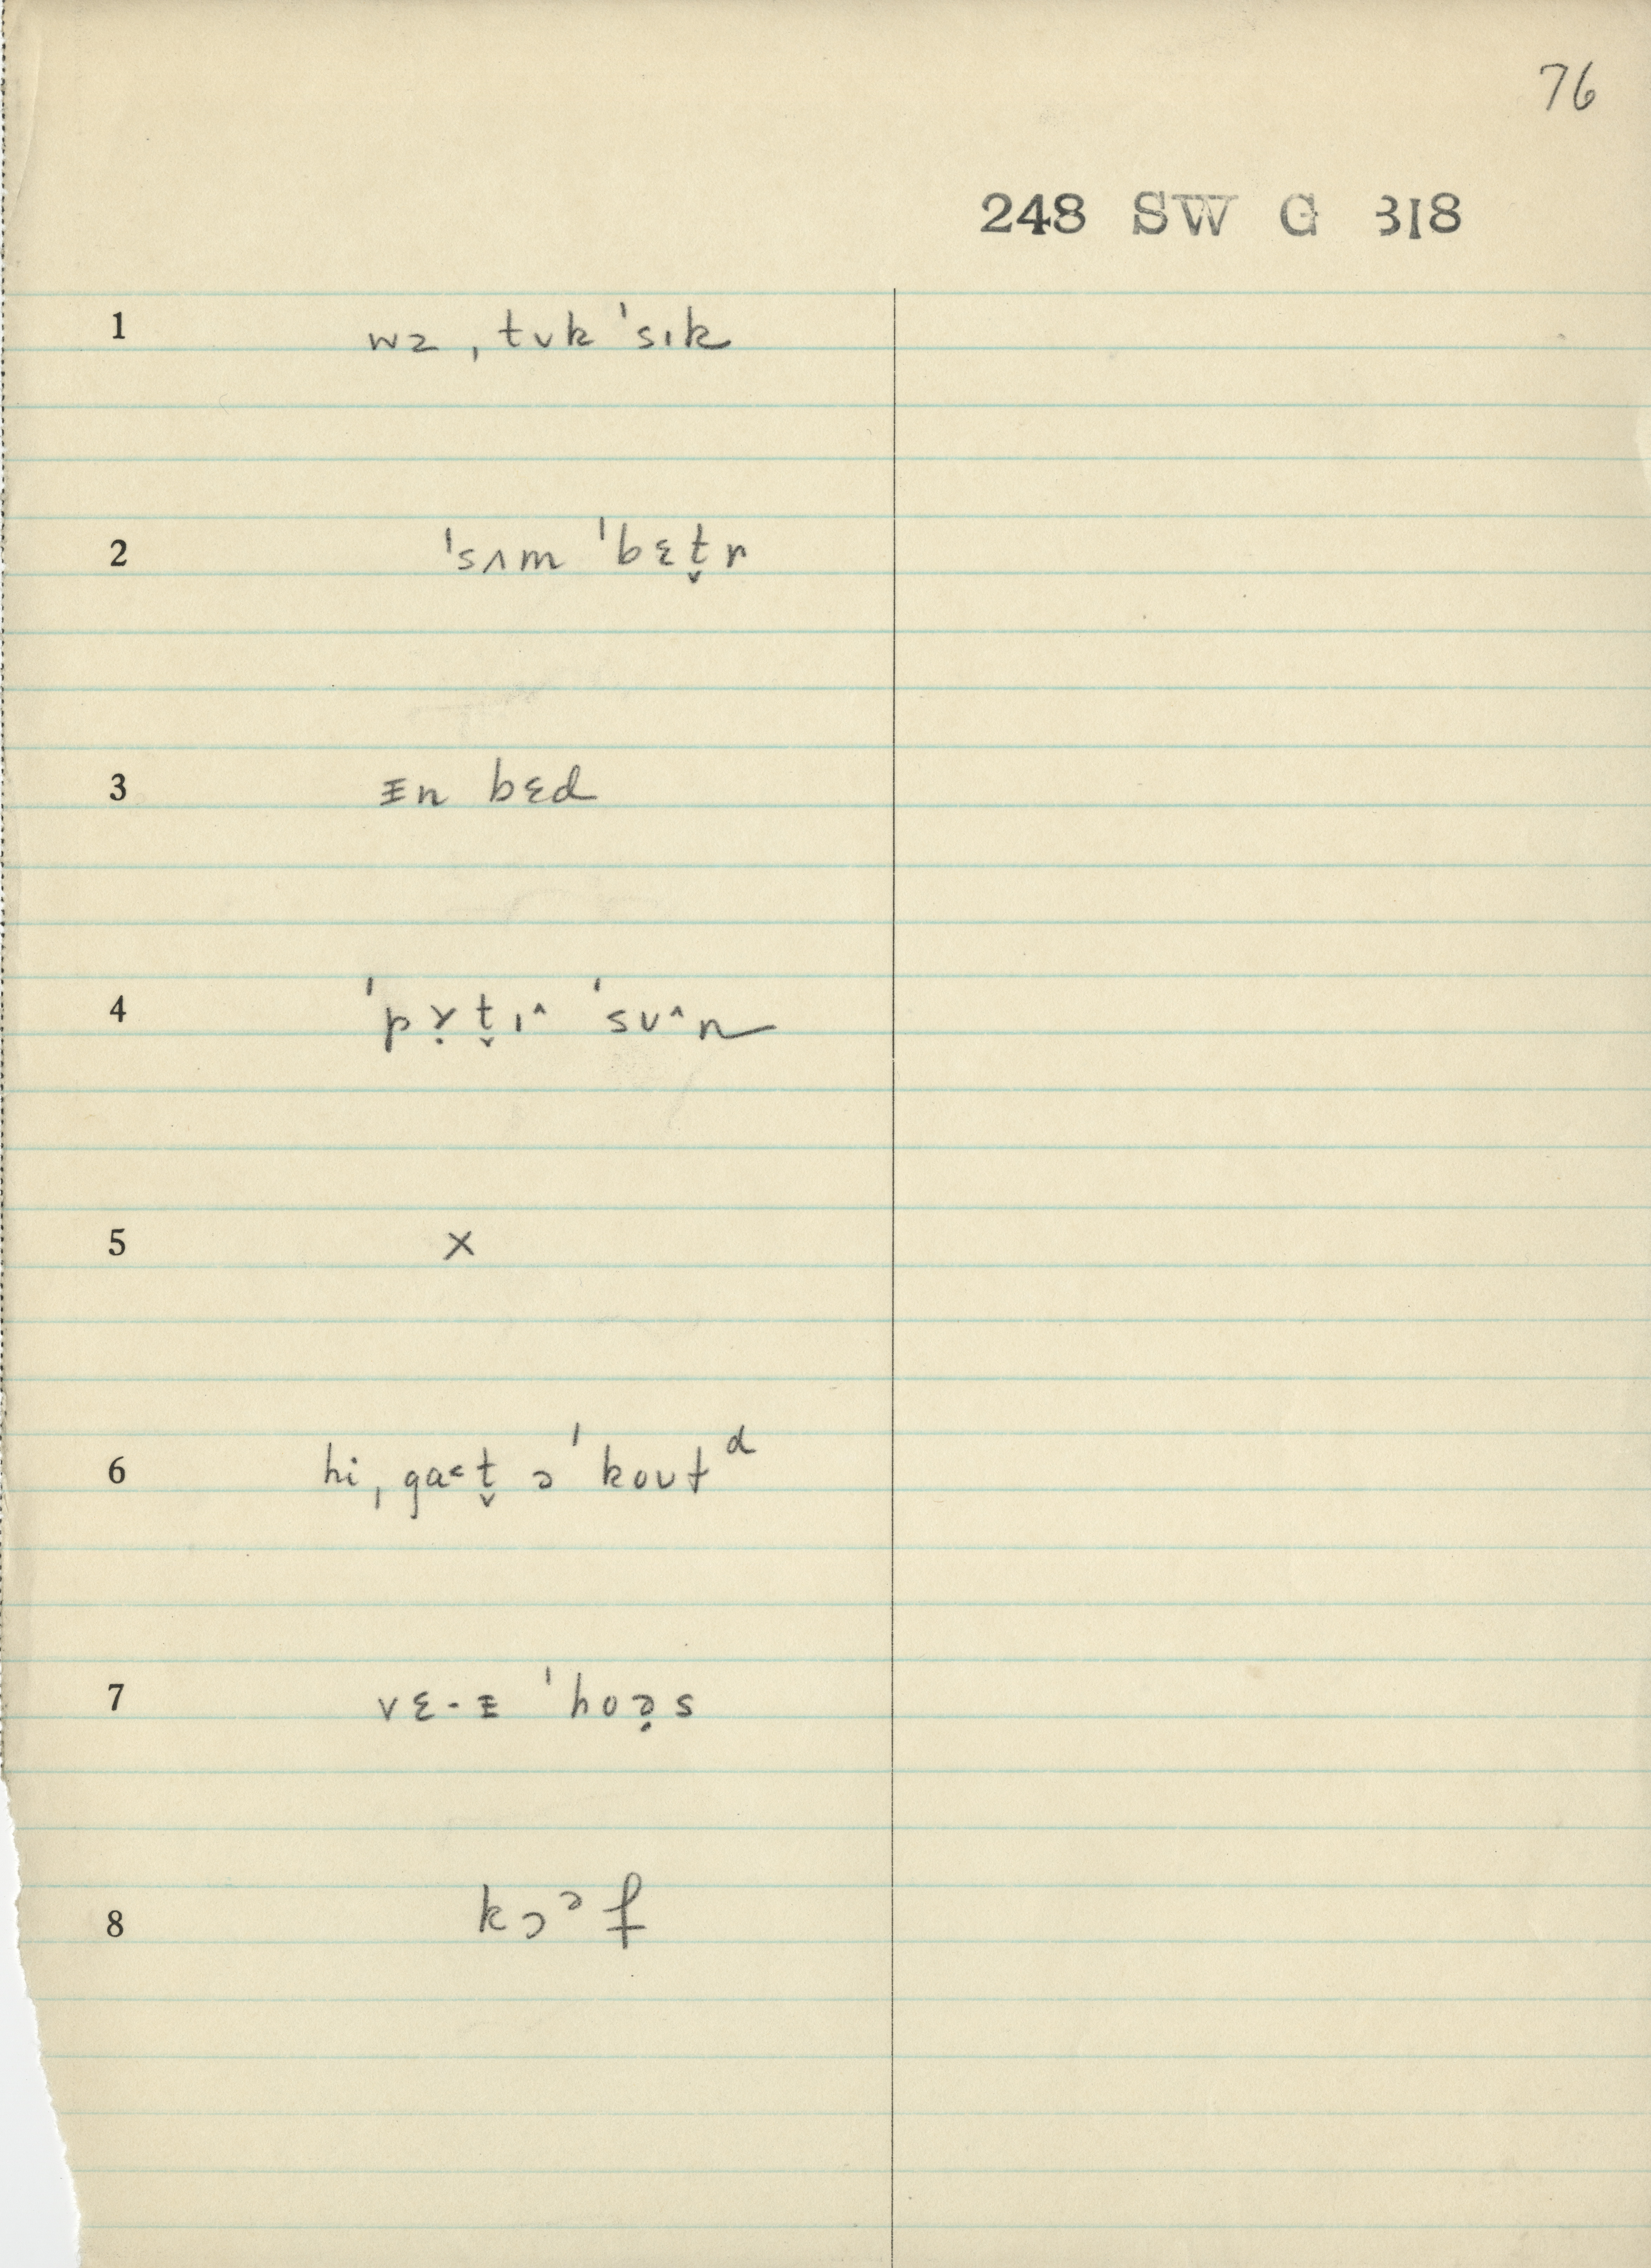 76
248 SW G 318
1 wɜ ˌtʊk ˈsɪk
2 ˈsʌm ˈbɛt̬r
3 ᵻn bɛd
4 ˈpɤ̣t̬ɪ^ ˈsʊ^n
5 x
6 hi ˌga˂t̬ ə ˈkoʊt d
7 vɛ-ᵻ ˈhoə̣s
8 kɔᵊf